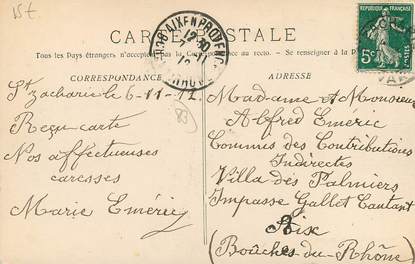 15 f
CARTE POSTALE
Tous les Pays étrangers n'acceptent pas la Correspondance au recto. — Se renseigner à la P
CORRESPONDANCE
ADRESSE
AIX EN PROVENCE
12 30
RÉPUBLIQUE FRANÇAISE
5c
VAR
St Zacharie le 6-11-12
Reçu carte
Nos affectueuses
caresses
Marie Eméric
83
Madame et Monsieur
Alfred Eméric
Commes des Contributions
Indirectes
Villa des Palmiers
Impasse Gallet Cantant
Aix
(Bouches-du-Rhône)